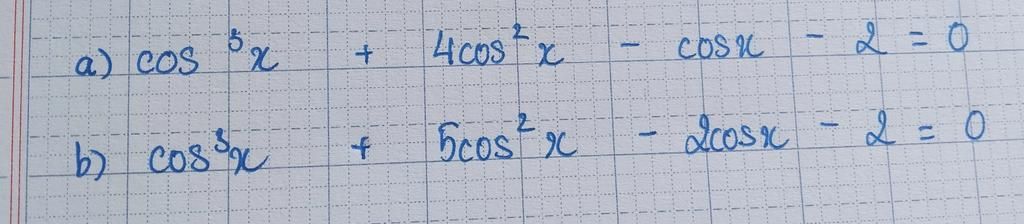 a) cos³x + 4cos²x - cosx - 2 = 0
b) cos³x + 5cos²x - 2cosx - 2 = 0